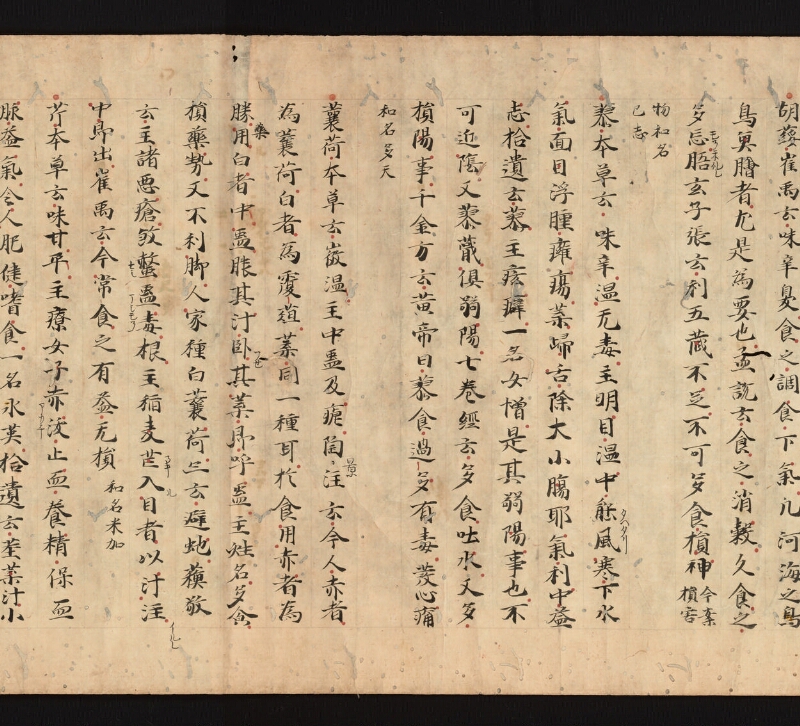 胡荽崔禹云味辛臭食之調食下氣凡河海之鳥
鳥臭膾者尤是為要也孟詵云食之消穀久食之
多忘膳玄子張云利五藏不足不可多食損神今案損害
物和名
己志
蓼本草云味辛温无毒主明目温中能風寒下水
氣面目浮腫癰瘍葉歸舌除大小腸耶氣利中益
志拾遺云蓼主痃癖一名女憎是其弱陽事也不
可近陰又蓼蕺俱弱陽七卷經云多食吐水又多
損陽事千金方云黄帝曰蓼食過多有毒發心痛
和名多天
蘘荷本草云微温主中蠱及瘧陶注云今人赤者
為蘘荷白者為覆葅葉同一種耳於食用赤者為
勝藥用白者中蠱服其汁卧其葉即呼蠱主姓名多食
損藥勢又不利脚人家種白蘘荷亦云避虵蘓敬
云主諸惡瘡殺螫蠱毒根主稲麦芒入目者以汁注
中即出崔禹云今常食之有益无損和名米加
芹本草云味甘平主療女子赤沃止血養精保血
脉益氣令人肥健嗜食一名水英拾遺云莖葉汁小